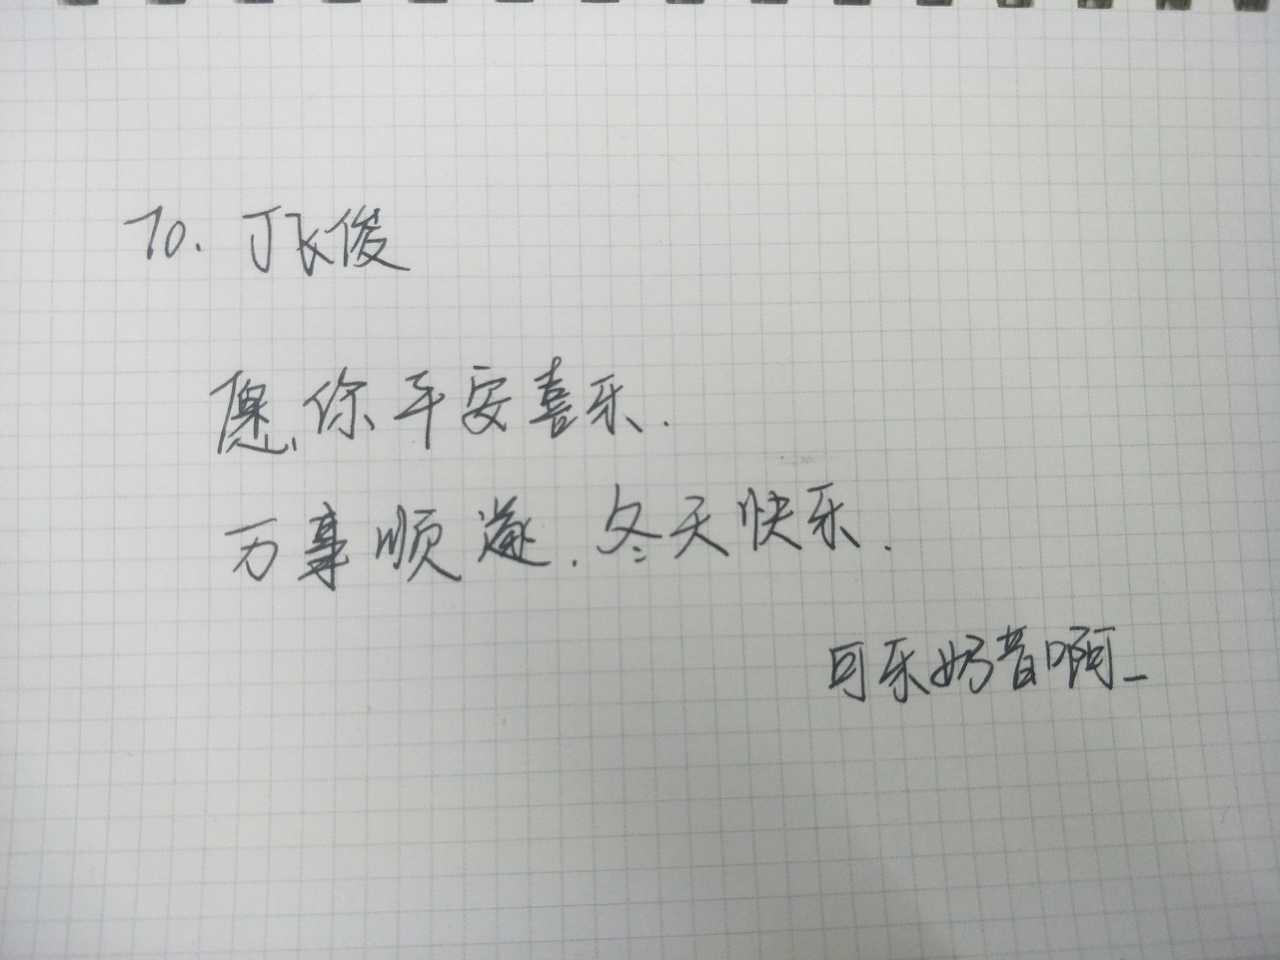 To. 丁飞俊
愿你平安喜乐.
万事顺遂.冬天快乐.
可乐奶昔啊_